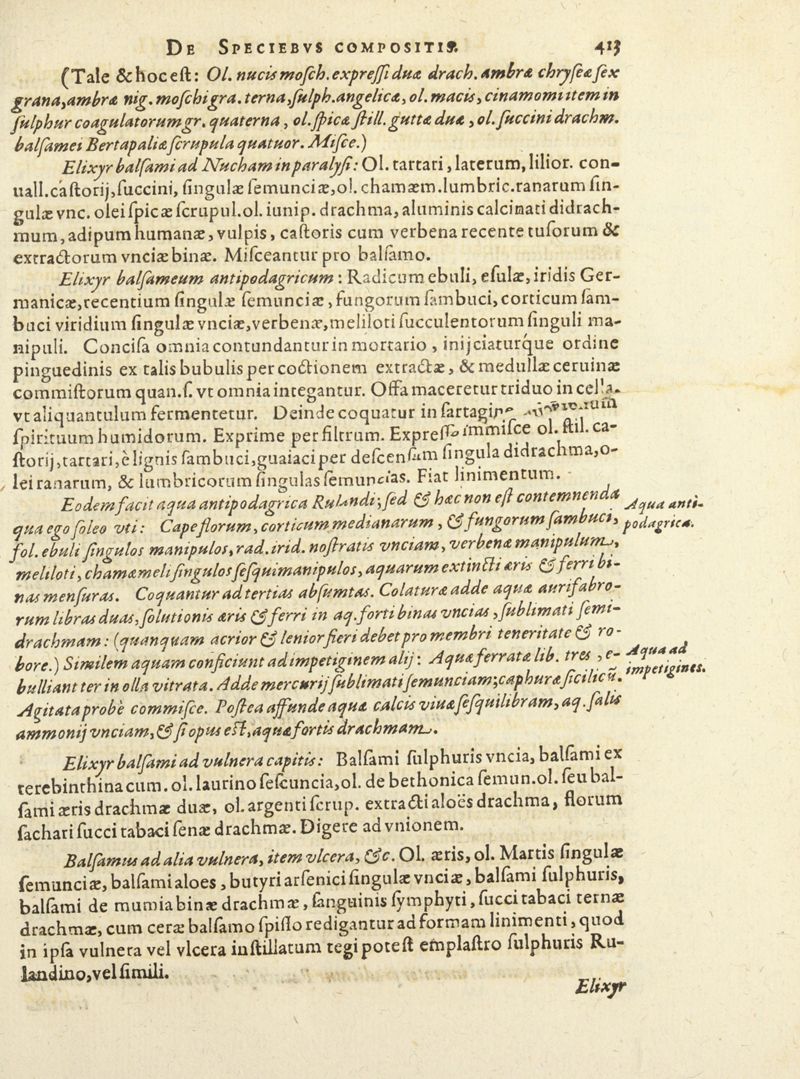 DE SPECIEBVS COMPOSITIS. 413
(Tale & hoc est: Ol. nucis mosch. expressi duæ drach. ambræ chryseæ sex
grana, ambræ nig. moschi gra. terna, sulph. angelicæ, ol. macis, cinamomi item in
sulphur coagulatorum gr. quaterna, ol. spicæ still. guttæ duæ, ol. succini drachm.
balsamei Bertapaliæ scrupula quatuor. Misce.)
Elixyr balsami ad Nucham in paralysi: Ol. tartari, laterum, lilior. con-
uall. castorij, succini, singulæ semunciæ, ol. chamæm. lumbric. ranarum sin-
gulæ vnc. olei spicæ scrupul. ol. iunip. drachma, aluminis calcinati didrach-
mum, adipum humanæ, vulpis, castoris cum verbena recente tusorum &
extractorum vnciæ binæ. Misceantur pro balsamo.
Elixyr balsameum antipodagricum: Radicum ebuli, esulæ, iridis Ger-
manicæ, recentium singulæ semunciæ, fungorum sambuci, corticum sam-
buci viridium singulæ vnciæ, verbenæ, meliloti succulentorum singuli ma-
nipuli. Concisa omnia contundantur in mortario, inijciaturque ordine
pinguedinis ex talis bubulis per coctionem extractæ, & medullæ ceruinæ
commistorum quan. s. vt omnia integantur. Offa maceretur triduo in cella,
vt aliquantulum fermentetur. Deinde coquatur in sartagine
spirituum humidorum. Exprime per filtrum. Expresso immisce ol. stil. ca-
storij, tartari, è lignis sambuci, guaiaci per descensum singula didrachma, o-
lei ranarum, & lumbricorum singulas semuncias. Fiat linimentum.
Eodem facit aqua antipodagrica Rulandi; sed & hæc non est contemnenda
Aqua anti-
qua ego soleo vti: Cape florum, corticum medianarum, & fungorum sambuci,
podagrica.
fol. ebuli singulos manipulos, rad. irid. nostratis vnciam, verbenæ manipulum,
meliloti, chamæmeli singulos sesquimanipulos, aquarum extincti æris & ferri bi-
nas mensuras. Coquantur ad tertias absumtas. Colaturæ adde aquæ aurifabro-
rum libras duas, solutionis æris & ferri in aq. forti binas vncias, sublimati semi-
drachmam: (quanquam acrior & lenior fieri debet pro membri teneritate & ro-
bore.) Similem aquam conficiunt ad impetiginem alij: Aquæ ferratæ lib. tres, e-
Aqua ad
impetigines.
bulliant ter in olla vitrata. Adde mercurij sublimati semunciam; caphuræ ficilicu.
Agitata probè commisce. Postea affunde aquæ calcis viuæ sesquilibram, aq. salis
ammonij vnciam, & si opus est, aquæ fortis drachmam.
Elixyr balsami ad vulnera capitis: Balsami sulphuris vncia, balsami ex
terebinthina cum. ol. laurino sescuncia, ol. de bethonica semun. ol. seu bal-
sami æris drachmæ duæ, ol. argenti scrup. extracti aloës drachma, florum
sachari succi tabaci senæ drachmæ. Digere ad vnionem.
Balsamus ad alia vulnera, item vlcera, &c. Ol. æris, ol. Martis singulæ
semunciæ, balsami aloes, butyri arsenici singulæ vnciæ, balsami sulphuris,
balsami de mumia binæ drachmæ, sanguinis symphyti, succi tabaci ternæ
drachmæ, cum ceræ balsamo spisso redigantur ad formam linimenti, quod
in ipsa vulnera vel vlcera instillatum tegi potest emplastro sulphuris Ru-
landino, vel simili.
Elixyr